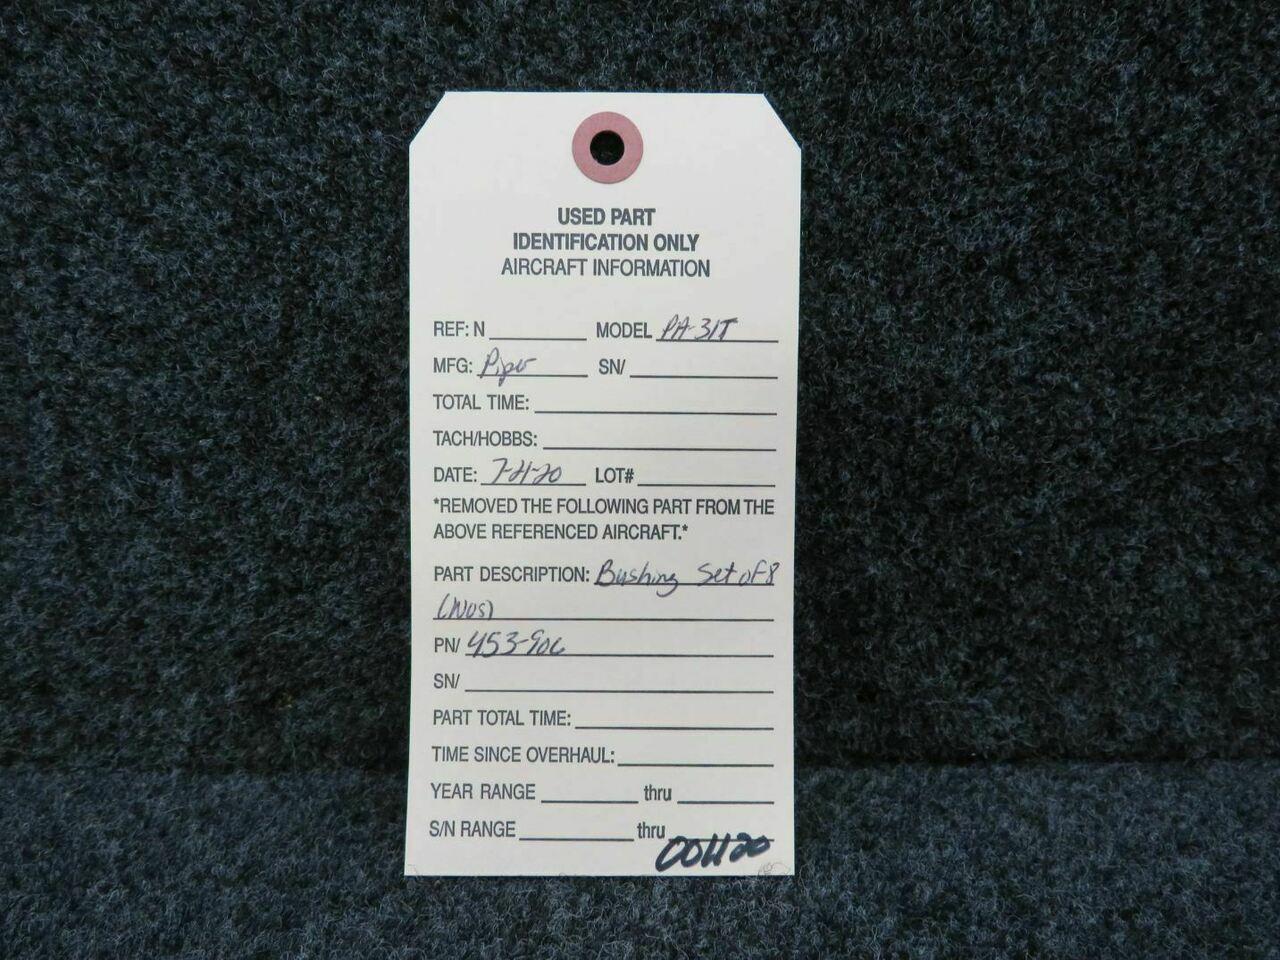 USED PART
IDENTIFICATION ONLY
AIRCRAFT INFORMATION
REF: N MODEL PA-31T
MFG: Piper SN/
TOTAL TIME:
TACH/HOBBS:
DATE: 7-21-20 LOT#
*REMOVED THE FOLLOWING PART FROM THE
ABOVE REFERENCED AIRCRAFT.*
PART DESCRIPTION: Bushing Set of 8
(NOS)
PN/ 453-906
SN/
PART TOTAL TIME:
TIME SINCE OVERHAUL:
YEAR RANGE thru
S/N RANGE thru